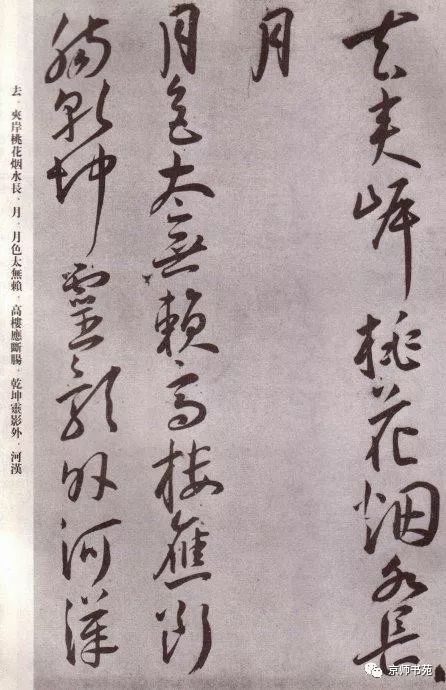 去夾岸桃花烟水長
月
月色太無賴高樓應斷
腸乾坤靈影外河漢
去．夾岸桃花烟水長．月．月色太無賴．高樓應斷腸．乾坤靈影外．河漢
京师书苑